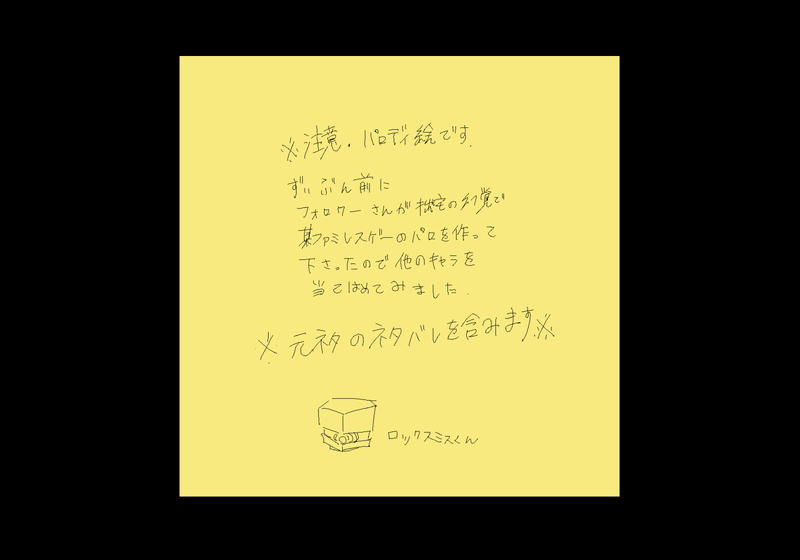 ※注意. パロディ絵です.
ずいぶん前に
フォロワーさんが拙宅の幻覚で
某ファミレスゲーのパロを作って
下さったので他のキャラを
当てはめてみました.
※元ネタのネタバレを含みます※
ロックスミスくん